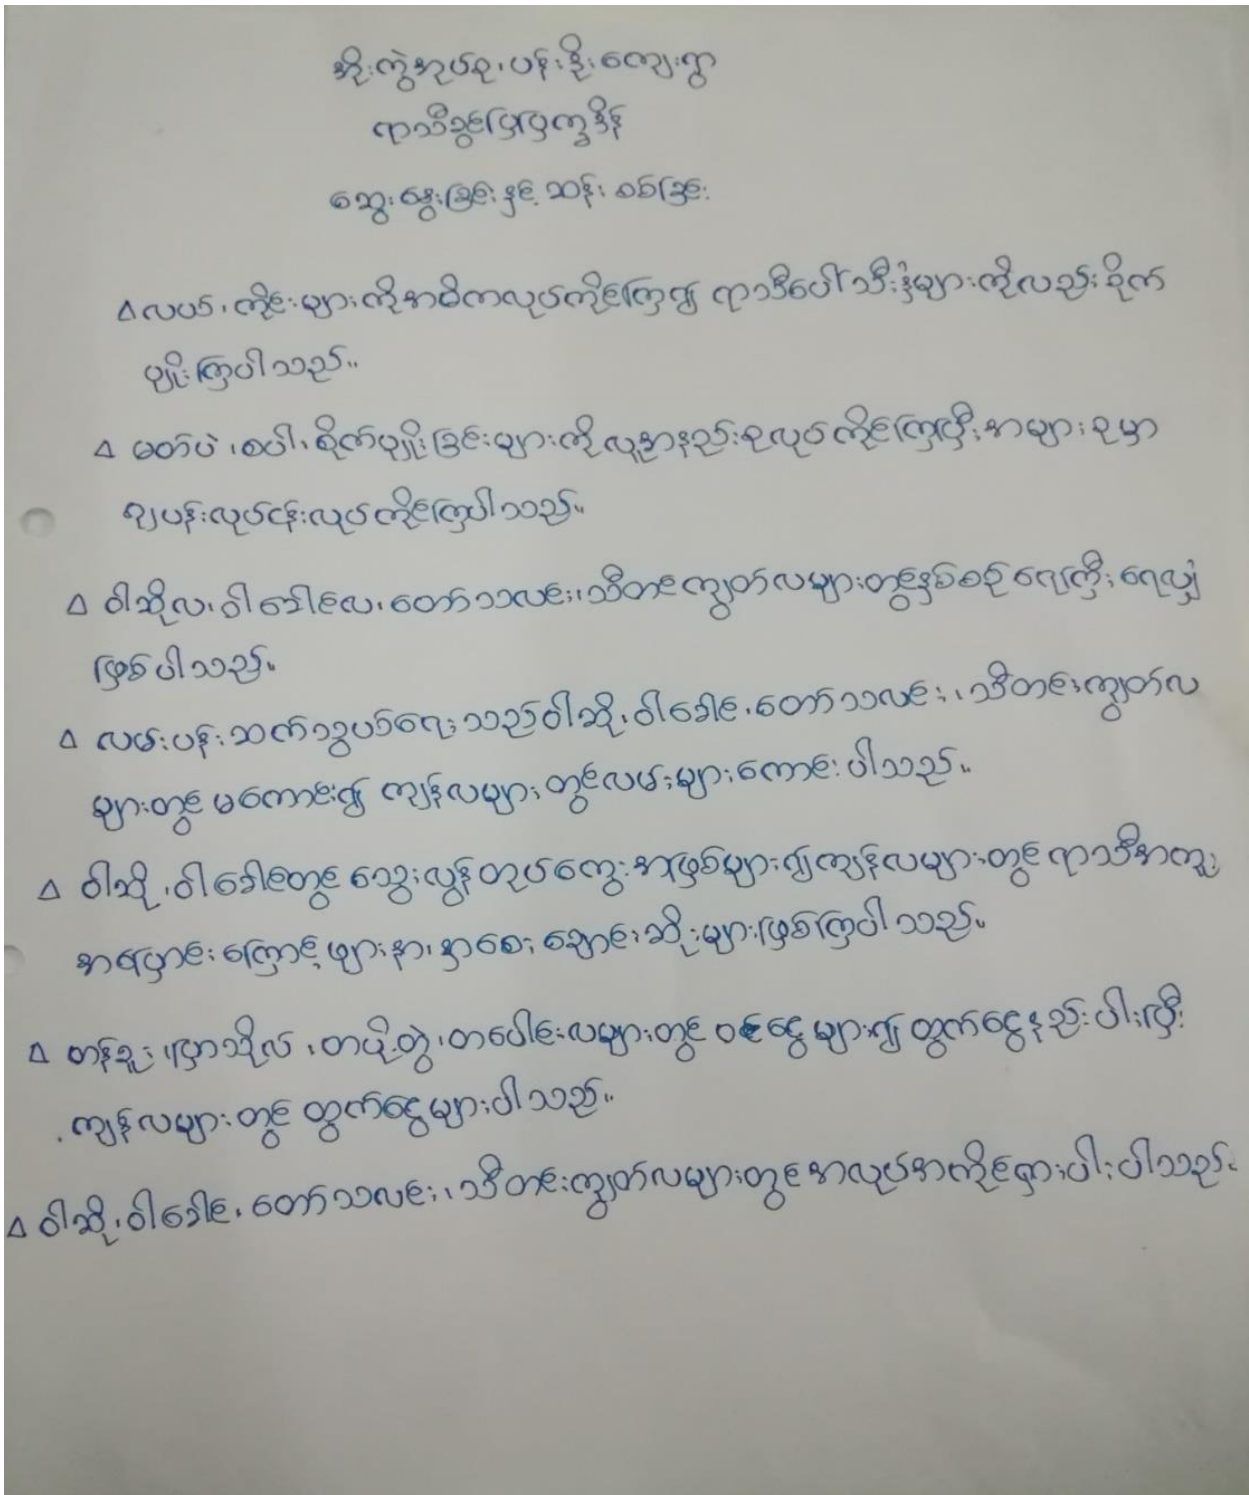 အိုးကွဲအုပ်စု၊ ပန်းခိုးကျေးရွာ
ရာသီခွင်ပြပြက္ခဒိန်
ဆွေးနွေးခြင်းနှင့် ဆန်းစစ်ခြင်း
Δ လယ်၊ ကိုင်းများကိုအဓိကလုပ်ကိုင်ကြ၍ ရာသီပေါ်သီးနှံများကိုလည်းစိုက်
ပျိုးကြပါသည်။
Δ မတ်ပဲ၊ စပါး၊ စိုက်ပျိုးခြင်းများကိုလူအနည်းစုလုပ်ကိုင်ကြပြီးအများစုမှာ
ကျပန်းလုပ်ငန်းလုပ်ကိုင်ကြပါသည်။
Δ ဝါဆိုလ၊ ဝါခေါင်လ၊ တော်သလင်း၊ သီတင်းကျွတ်လများတွင်နှစ်စဉ် ရေကြီး ရေလျှံ
ဖြစ်ပါသည်။
Δ လမ်းပန်းဆက်သွယ်ရေးသည်ဝါဆို၊ ဝါခေါင်၊ တော်သလင်း၊ သီတင်းကျွတ်လ
များတွင် မကောင်း၍ ကျန်လများတွင်လမ်းများကောင်းပါသည်။
Δ ဝါဆို၊ ဝါခေါင်တွင် သွေးလွန်တုပ်ကွေးအဖြစ်များ၍ကျန်လများတွင် ရာသီအကူး
အပြောင်းကြောင့်ဖျားနာ၊ နှာစေး ချောင်းဆိုးများဖြစ်ကြပါသည်။
Δ တန်ခူး၊ ပြာသိုလ်၊ တပို့တွဲ၊ တပေါင်းလများတွင် ဝင်ငွေများ၍ ထွက်ငွေနည်းပါးပြီး
ကျန်လများတွင် ထွက်ငွေများပါသည်။
Δ ဝါဆို၊ ဝါခေါင်၊ တော်သလင်း၊ သီတင်းကျွတ်လများတွင်အလုပ်အကိုင်ရှားပါးပါသည်။